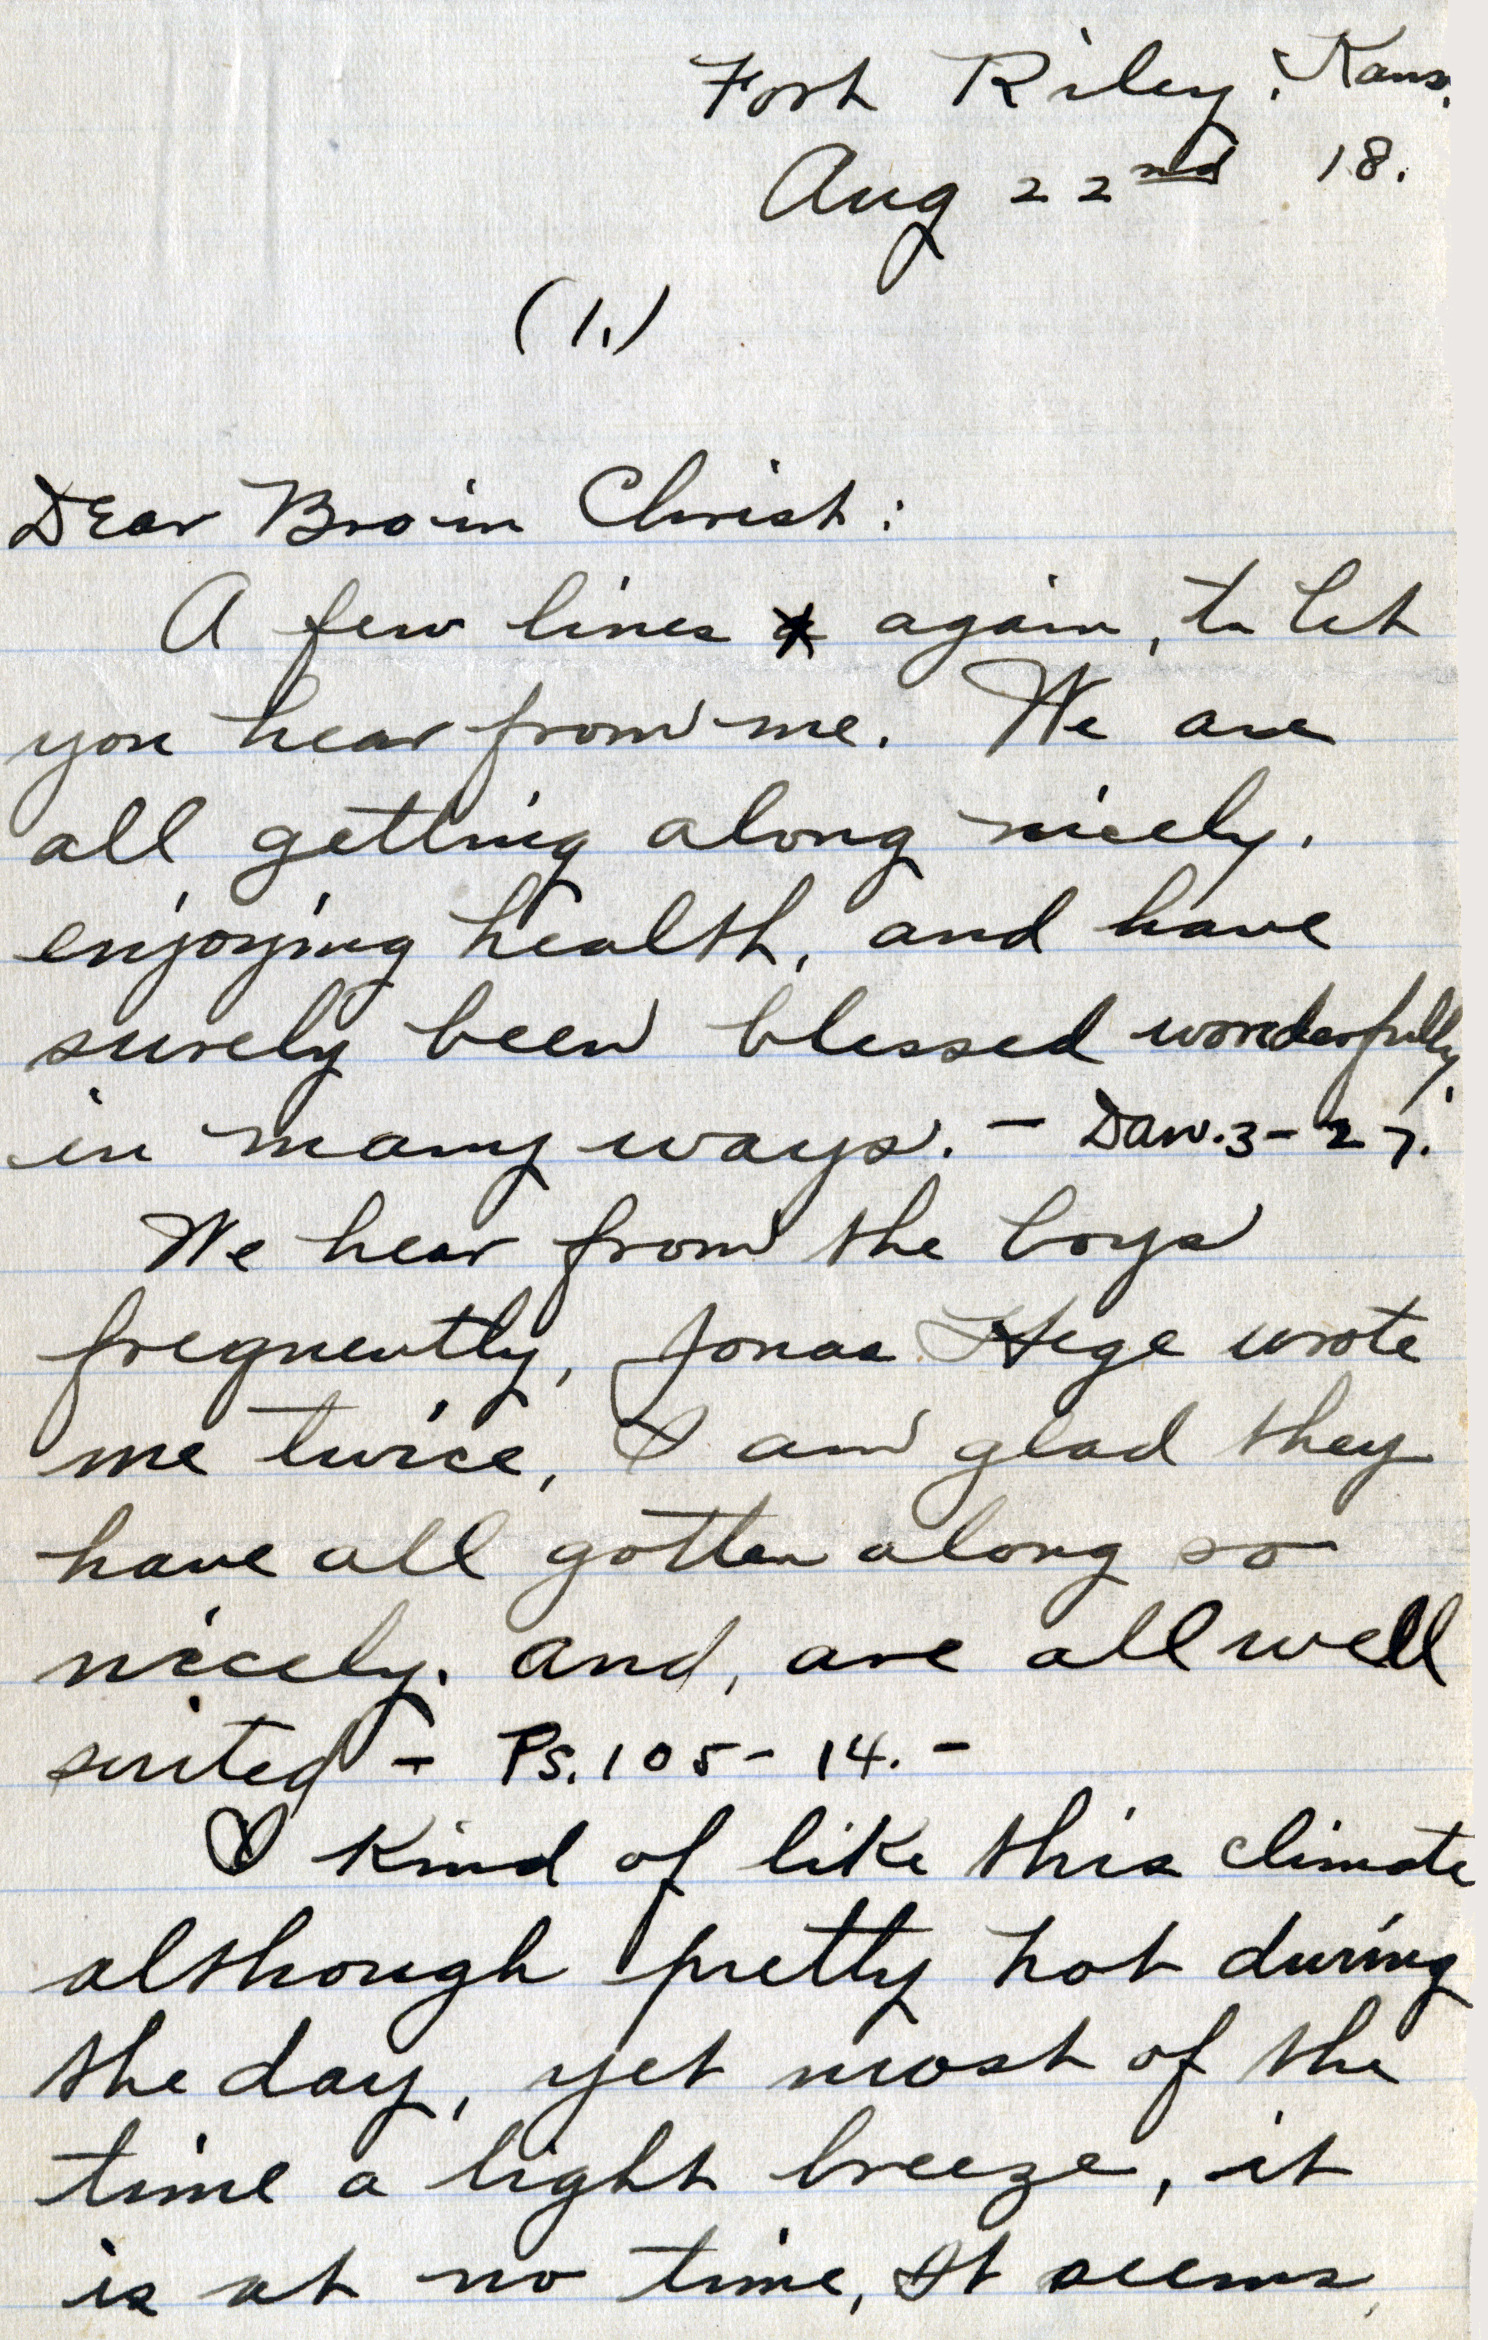 Fort Riley, Kans.
Aug 22nd 18.
(1.)
Dear Bro in Christ:
A few lines again, to let
you hear from me. We are
all getting along nicely.
enjoying health, and have
surely been blessed wonderfully,
in many ways. - Dan. 3-27.
We hear from the boys
frequently, Jonas Hege wrote
me twice, I am glad they
have all gotten along so
nicely. and, are all well
suited - Ps. 105-14. -
I kind of like this climate
although pretty hot during
the day, yet most of the
time a light breeze, it
is at no time, It seems,